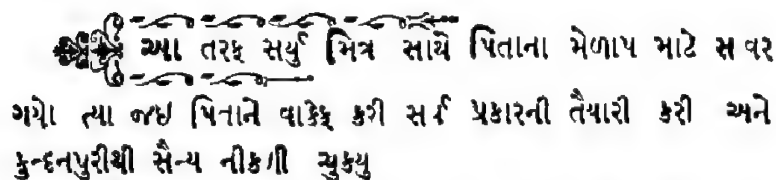 આ તરફ સર્યુ મિત્ર સાથે પિતાના મેળાપ માટે સ વર
ગયો ત્યા જઇ પિતાને વાકેફ કરી સર્વ પ્રકારની તૈયારી કરી અને
કુન્દનપુરીથી સૈન્ય નીકળી ચુકયુ